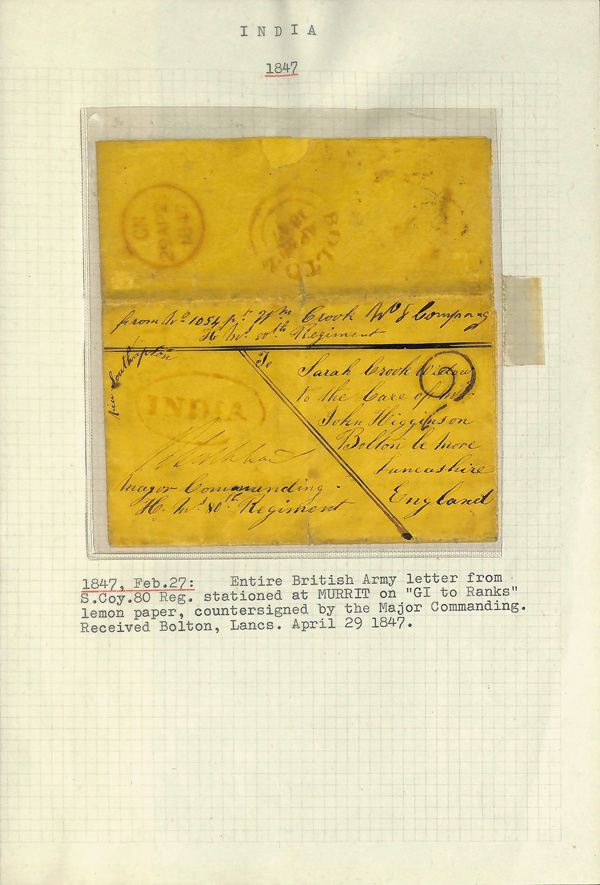 INDIA
1847
GN
29 AP 29
1847
BOLTON
from No 1054 pt. Wm Crook No 8 Company
H. Ms. 80th Regiment
via Southampton
To
Sarah Crook Widow
to the Care of Mr.
John Higginson
Bolton le more
Lancashire
England
INDIA
Major Commanding
H. Ms 80th Regiment
1847, Feb.27: Entire British Army letter from
S.Coy.80 Reg. stationed at MURRIT on "GI to Ranks"
lemon paper, countersigned by the Major Commanding.
Received Bolton, Lancs. April 29 1847.